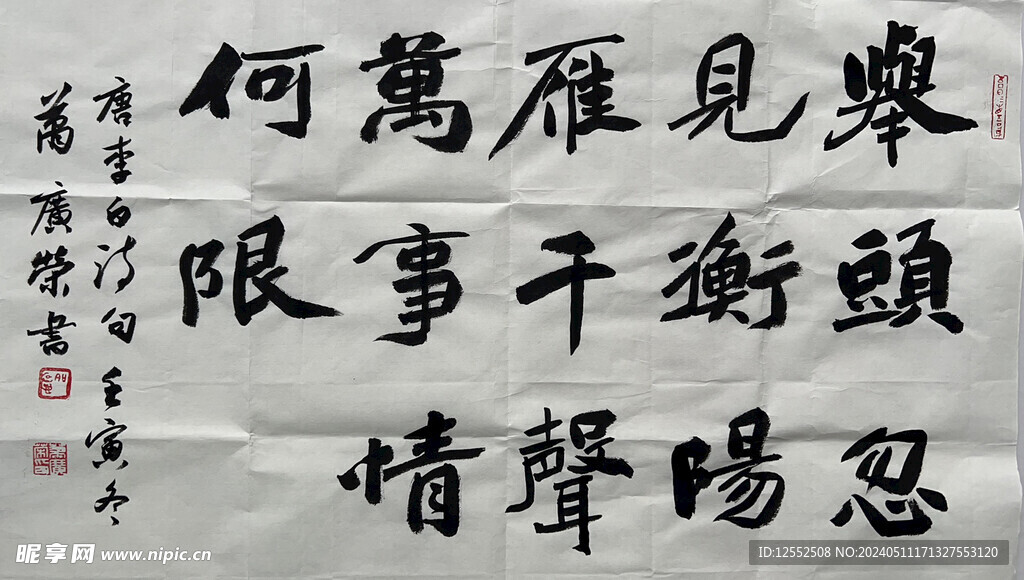 舉頭忽
見衡陽
雁千聲
萬事情
何限
唐李白诗句壬寅冬
萬廣榮書
昵享网 www.nipic.cn
ID:12552508 NO:20240511171327553120